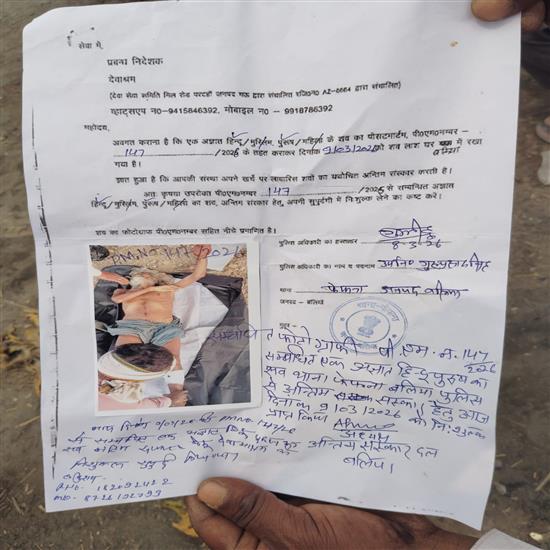 सेवा में,
प्रबन्ध निदेशक
देवाश्रम
(देवा सेवा समिति मिल रोड परदहाँ जनपद मऊ द्वारा संचालित रजि0न0 AZ-6664 द्वारा संचालित)
व्हाट्सएप न0-9415846392, मोबाइल न0 - 9918786392
महोदय,
अवगत कराना है कि एक अज्ञात हिन्दू/मुस्लिम, पुरूष/महिला के शव का पोस्टमार्टम, पी0एम0नम्बर -
147 /2026 के तहत कराकर दिनांक 9/03/2026 को शव लाश घर में रखा
गया है।
ज्ञात हुआ है कि आपकी संस्था अपने खर्चे पर लावारिस शवों का यथोचित अन्तिम संस्कार कराती है।
अतः कृपया उपरोक्त पी0एम0नम्बर 147 /2026 से सम्बन्धित अज्ञात
हिन्दू/मुस्लिम, पुरूष/महिला का शव, अन्तिम संस्कार हेतु, अपनी सुपुर्दगी में निःशुल्क लेने का कष्ट करें।
शव का फोटोग्राफ पी0एम0नम्बर सहित नीचे प्रमाणित है।
पुलिस अधिकारी का हस्ताक्षर
8-3-26
पुलिस अधिकारी का नाम व पदनाम उ0नि0
थाना फेफना जनपद बलिया
जनपद - बलिया
मुहर -
P.M.No 147/2026
सम्बन्धित फोटो ग्राफी पी. एम. न. 147
2026
सम्बन्धित एक अज्ञात हिन्दू पुरुष का
शव थाना फेफना बलिया पुलिस
से अन्तिम संस्कार हेतु आज
दिनांक 9/03/2026 को निःशुल्क
प्राप्त किया
अध्यक्ष
अन्तिम संस्कार दल
बलिया।